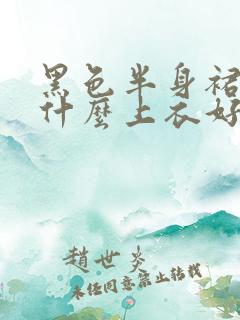 黑色半身裙
什麼上衣好
趙世炎
未经同意禁止转载